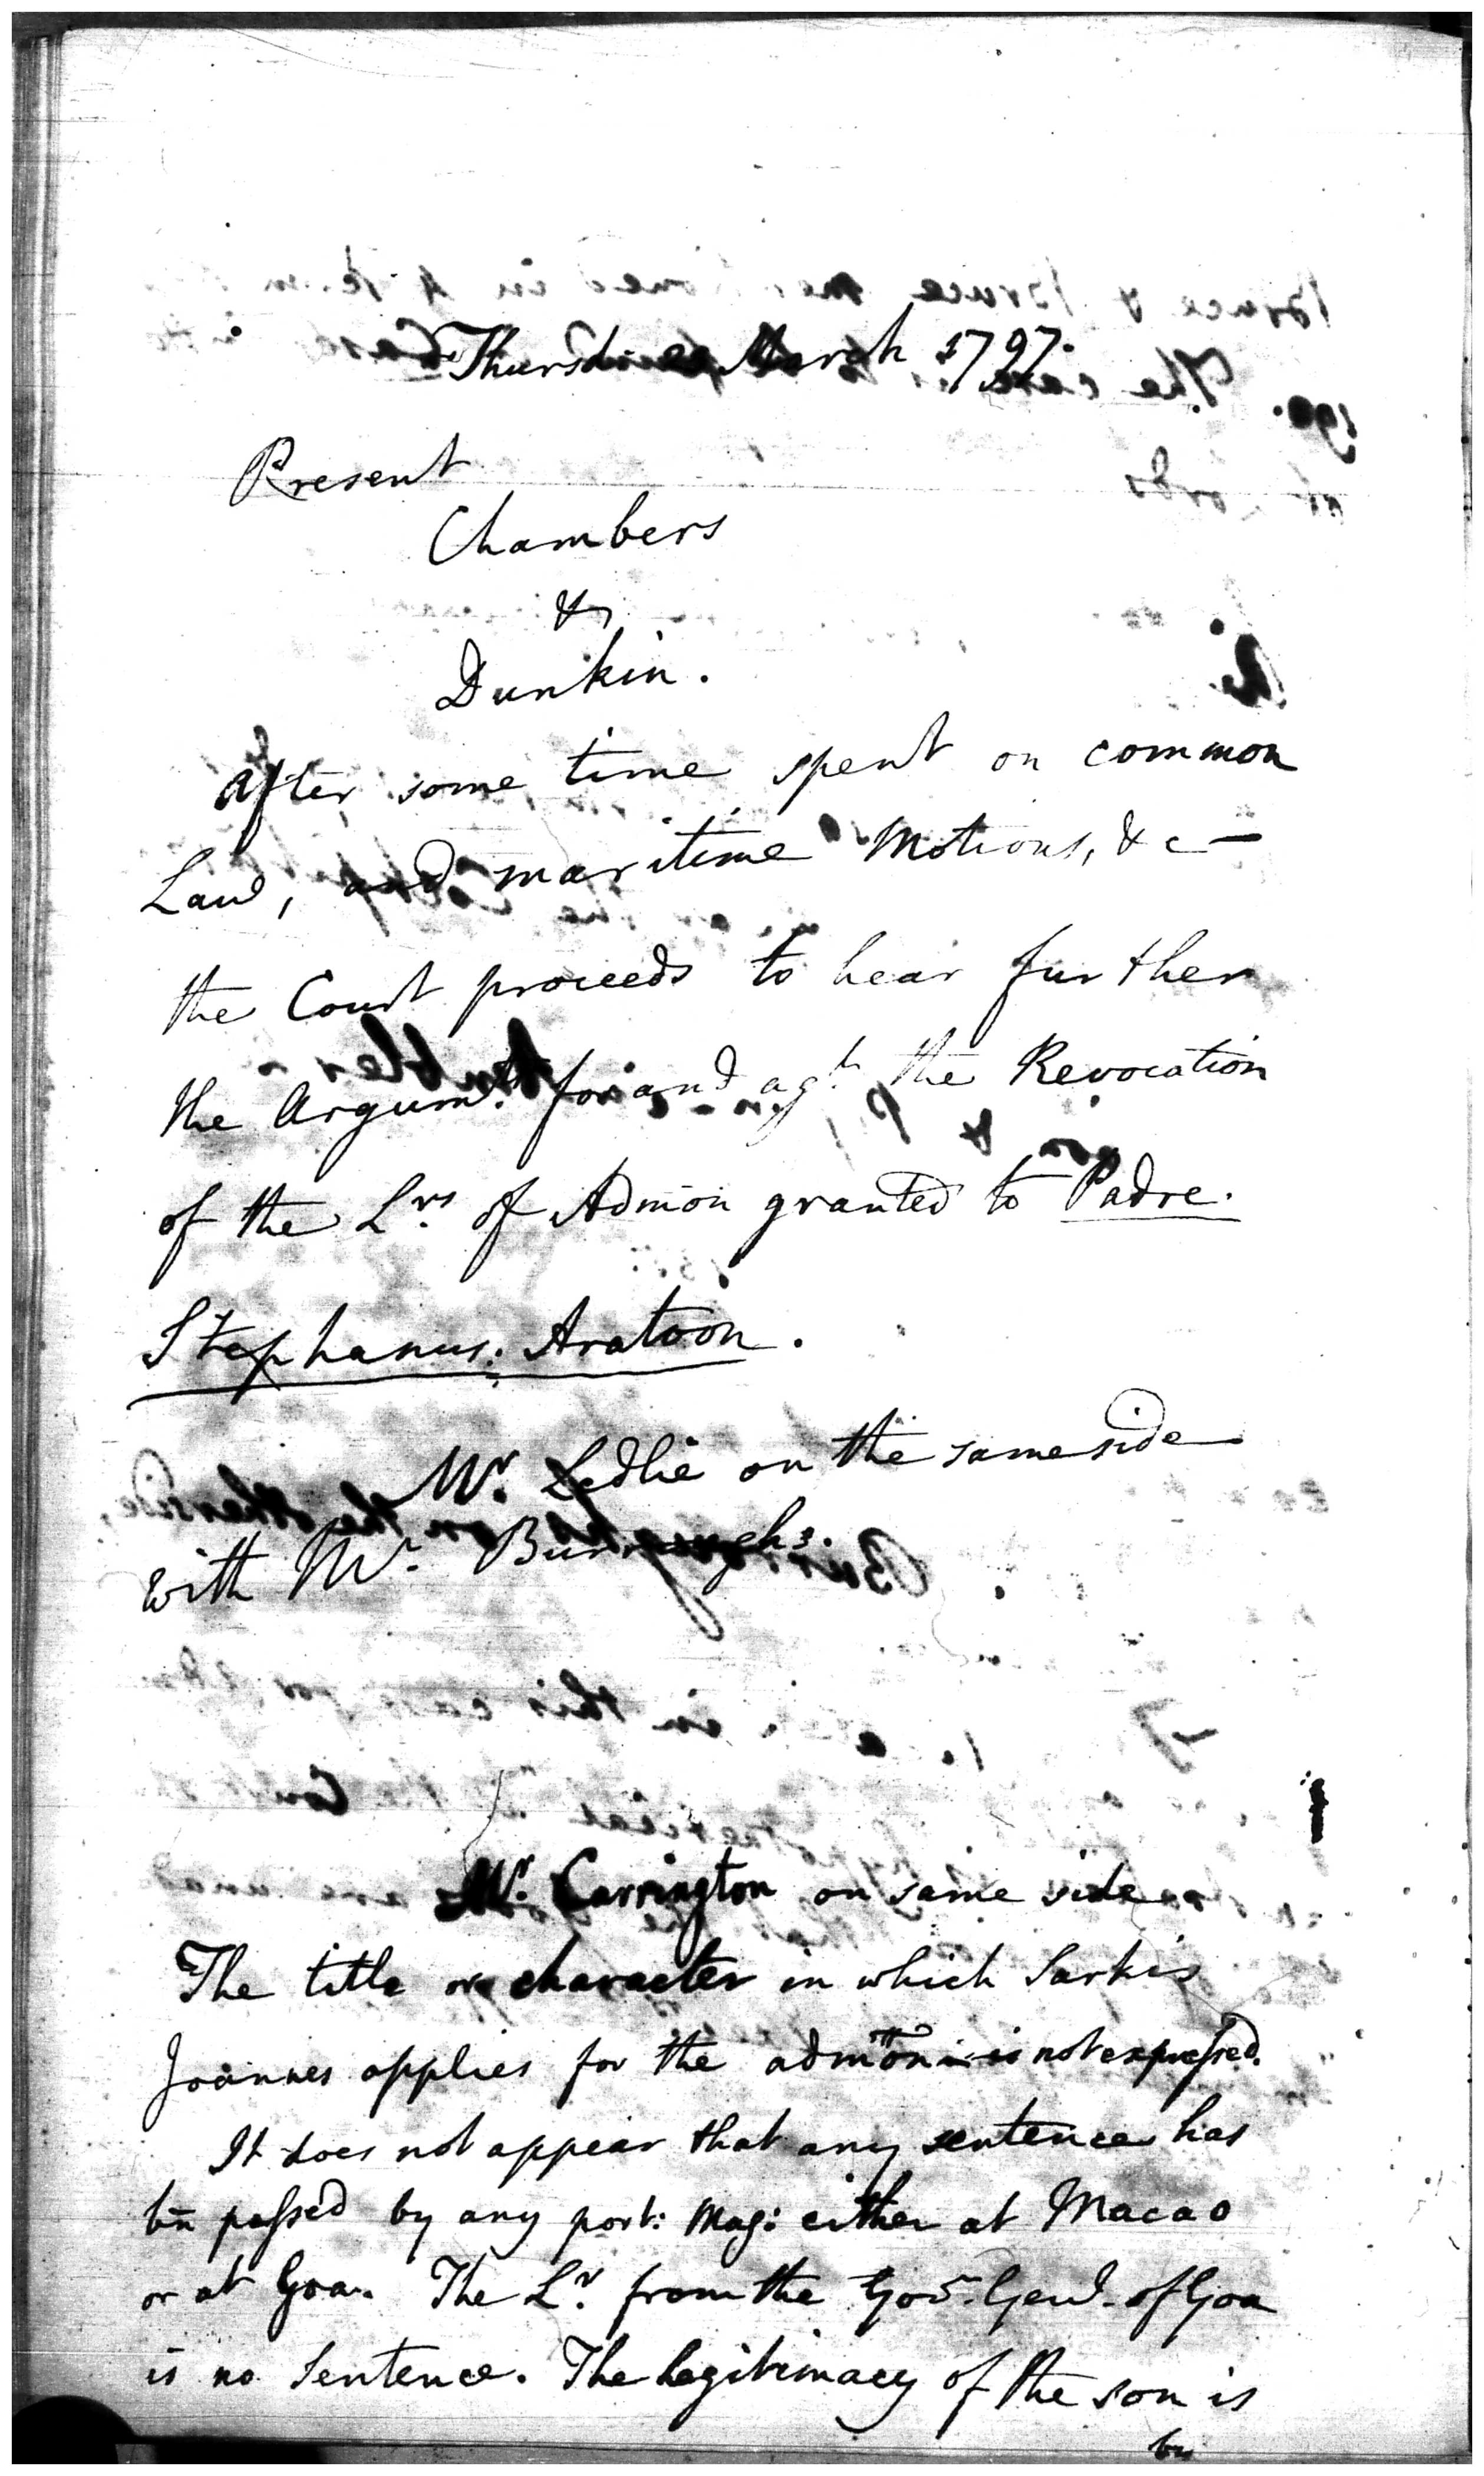 Thursday March 1797.
Present
Chambers
&
Dunkin.
After some time spent on common
Law, and maritime Motions, &c—
the Court proceeds to hear further
the Argumts. for and agt. the Revocation
of the Lrs. of Admōn granted to Padre.
Stephanus: Aratoon.
Mr. Ledlie on the same side
with Mr. Burroughs.
Mr. Carrington on same side
The title or character in which Sarkis
Joannes applies for the admōn is not expressed.
It does not appear that any sentence has
bn̄ passed by any port: Mag: either at Macao
or at Goa. The Lr. from the Govr. Genl. of Goa
is no Sentence. The legitimacy of the son is
by